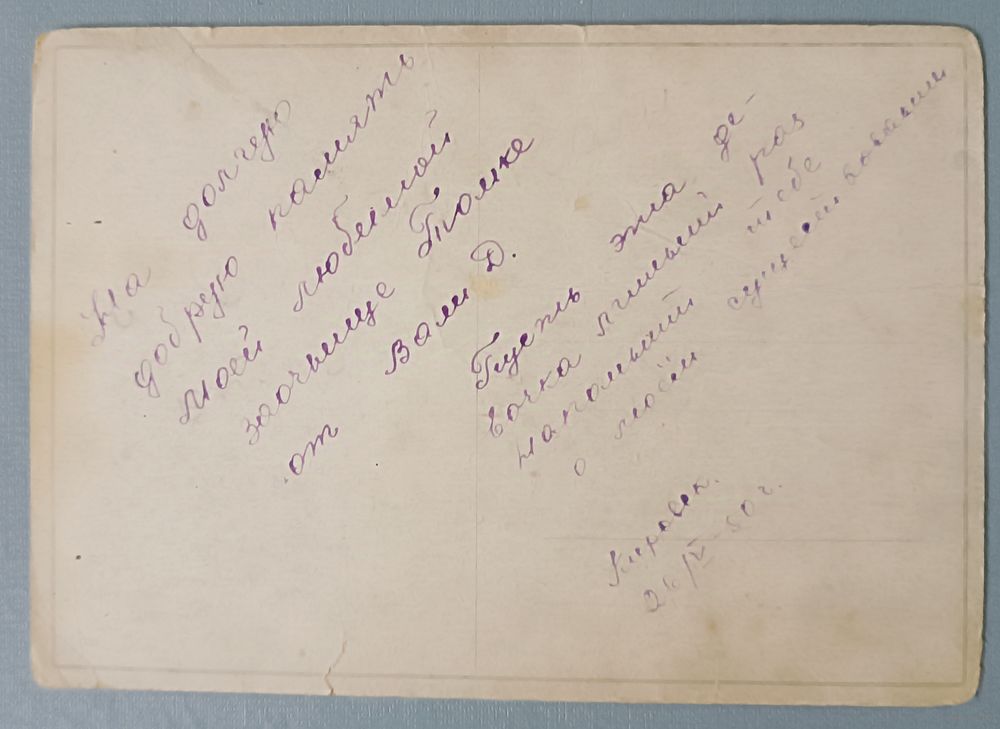 На долгую
добрую память
моей любимой
заочнице Томке
от Вали Д.
Пусть эта де-
вочка лишний раз
напомнит тебе
о моём существовании
Кировск.
24/IV-50 г.